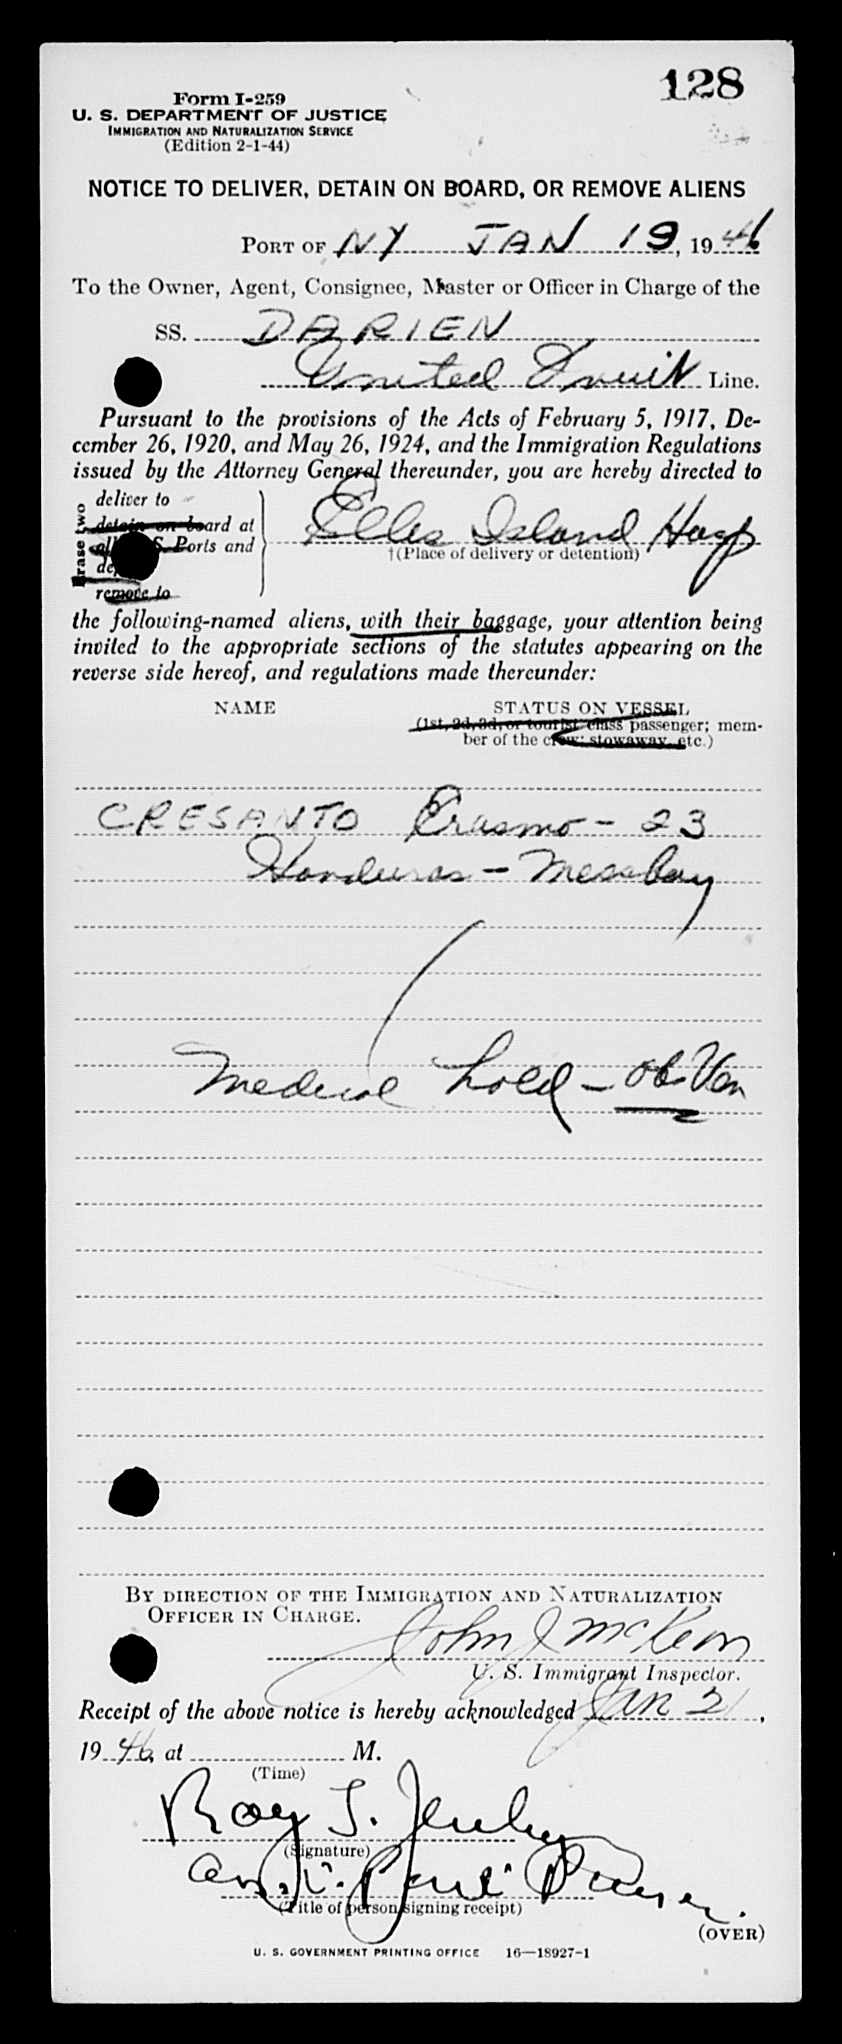 128
Form I-259
U. S. DEPARTMENT OF JUSTICE
IMMIGRATION AND NATURALIZATION SERVICE
(Edition 2-1-44)
NOTICE TO DELIVER, DETAIN ON BOARD, OR REMOVE ALIENS
PORT OF NY JAN 19, 1946
To the Owner, Agent, Consignee, Master or Officer in Charge of the
SS. DARIEN
United Fruit Line.
Pursuant to the provisions of the Acts of February 5, 1917, De-
cember 26, 1920, and May 26, 1924, and the Immigration Regulations
issued by the Attorney General thereunder, you are hereby directed to
Erase two
deliver to
detain on board at
all U.S. Ports and
remove to
Ellis Island Hosp
†(Place of delivery or detention)
the following-named aliens, with their baggage, your attention being
invited to the appropriate sections of the statutes appearing on the
reverse side hereof, and regulations made thereunder:
NAME STATUS ON VESSEL
(1st, 2d, 3d, or tourist class passenger; mem-
ber of the crew; stowaway, etc.)
CRESANTO Erasmo - 23
Honduras - Messboy
Medical hold - Obs Ven
BY DIRECTION OF THE IMMIGRATION AND NATURALIZATION
OFFICER IN CHARGE.
John J McKeon
U. S. Immigrant Inspector.
Receipt of the above notice is hereby acknowledged Jan 21,
1946, at M.
(Time)
Roy J.
(Signature)
(Title of person signing receipt)
(OVER)
U. S. GOVERNMENT PRINTING OFFICE 16—18927-1